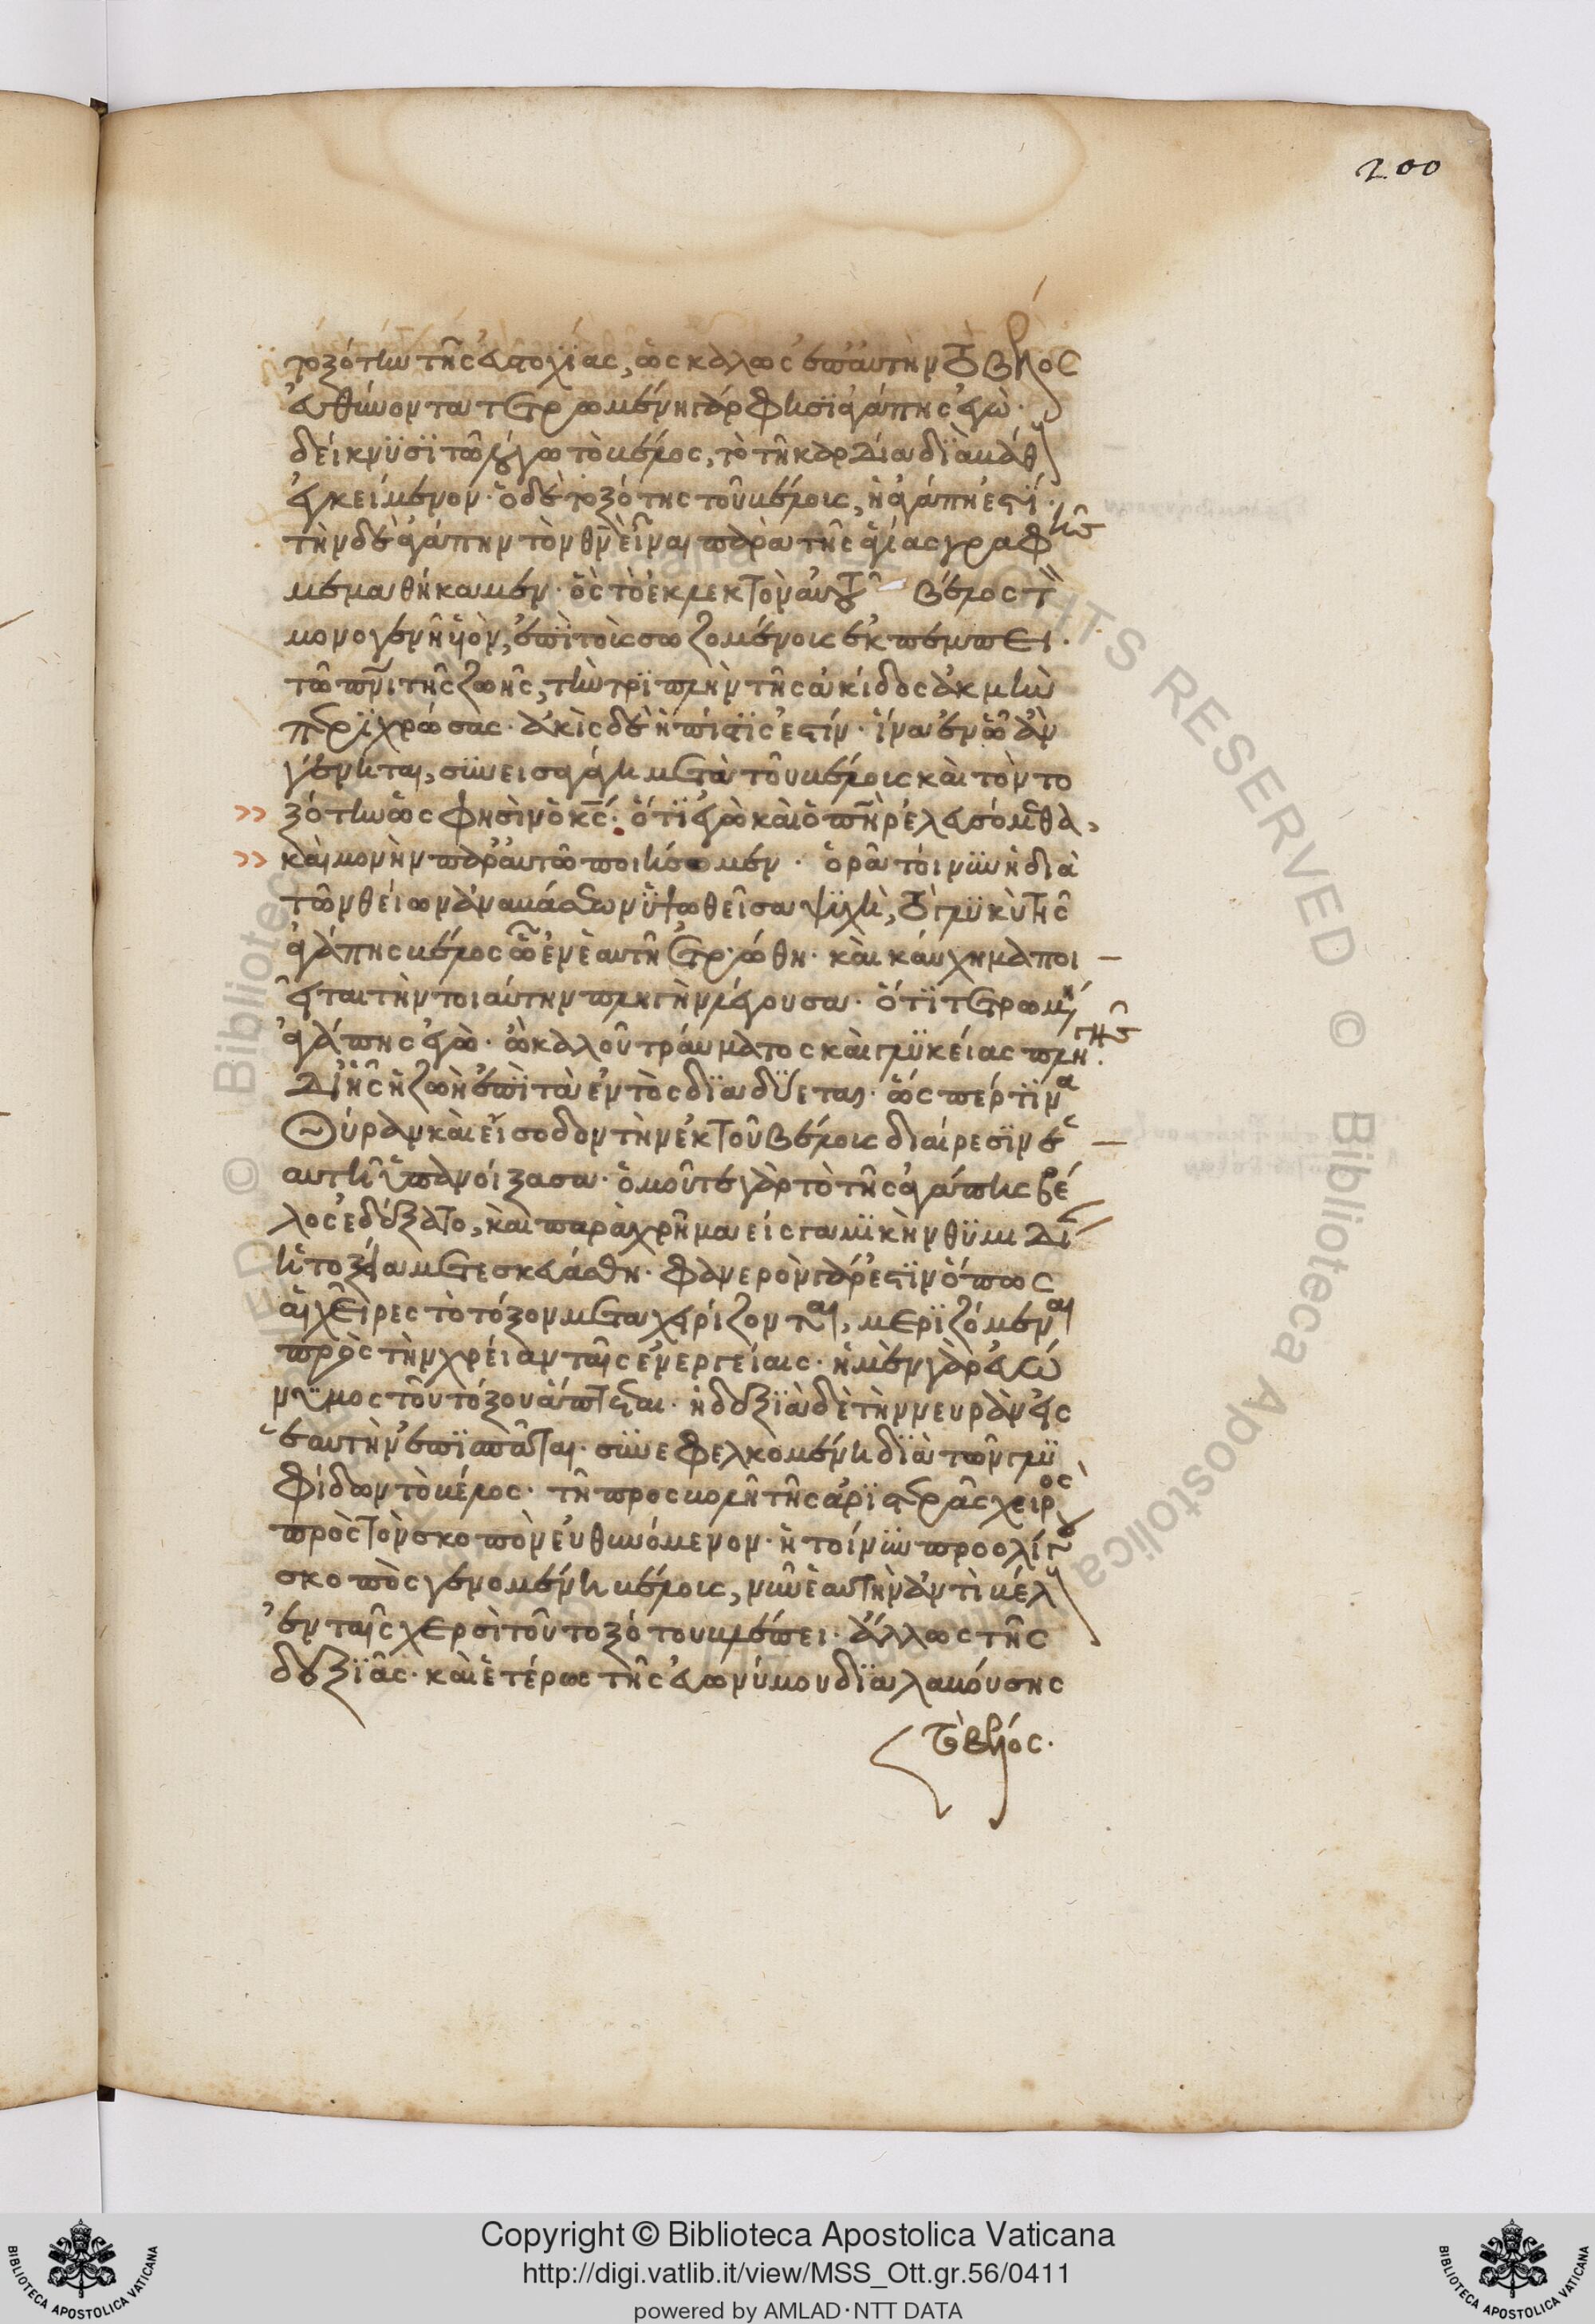 τοξότην τῆς εὐστοχίας, ὡς καλῶς ἐπ' αὐτὴν τὸ βέλος
εὐθύνοντα τετρωμένη γάρ φησϊ ἀγάπης ἐγώ·
δείκνυσϊ τῶ λόγω τὸ βέλος, τὸ τῆ καρδία δϊὰ βάθους
ἐγκείμενον· ὁ δὲ τοξότης τοῦ βέλους, ἡ ἀγάπη ἐστί·
τὴν δὲ ἀγάπην τὸν θν εἶναι παρὰ τῆς ἁγίας γραφῆς
μεμαθήκαμεν· ὃς τὸ ἐκλεκτὸν αὐτοῦ βέλος τὸν
μονογενῆ υἱὸν, ἐπὶ τοὺς σωζομένους ἐκπέμπει·
τῶ πνι τῆς ζωῆς, τὴν τρϊπλῆν τῆς ἀκίδος ἀκμὴν
περϊχρώσας· ἀκὶς δὲ ἡ πίστϊς ἐστίν· ἵνα ἐν ᾧ ἂν
γένηται, συνεισαγάγη μετὰ τοῦ βέλους καὶ τὸν το
» ξότην ὥς φησὶν ὁ κς· ὅτϊ ἐγὼ καὶ ὁ πηρ ἐλευσόμεθα,
» καὶ μονὴν παρ' αὐτῶ ποιήσομεν· ὁρᾶ τοίνυν ἡ διὰ
τῶν θείων ἀναβάσεων ὑψωθεῖσα ψϋχὴ, τὸ γλϋκὺ τῆς
ἀγάπης βέλος ᾧ ἐν ἑαυτῆ ἐτρώθη· καὶ καύχημα ποι
εῖται τὴν τοιαύτην πληγὴν λέγουσα· ὅτϊ τετρωμένη
ἀγάπης ἐγώ· ὢ καλοῦ τραύματος καὶ γλϋκείας πληγῆς·
δι' ἧς ἡ ζωὴ ἐπὶ τὰ ἐντὸς δϊαδύεται· ὥσπέρ τϊνα
θύραν καὶ εἴσοδον τὴν ἐκ τοῦ βέλους διαίρεσϊν ἑ
αυτῆ ὑπανοίξασα· ὁμοῦ τε γὰρ τὸ τῆς ἀγάπης βέ
λος ἐδέξατο, καὶ παρὰχρῆμα εἰς γαμϊκὴν θϋμηδίαν
ἡ τοξεία μετεσκευάσθη· φανερὸν γάρ ἐστϊν ὅπως
αἱ χεῖρες τὸ τόξον μεταχειρίζονται, μερϊζόμεναι
πρὸς τὴν χρείαν ταῖς ἐνεργείαις· ἡ μὲν γὰρ εὐώ
νϋμος τοῦ τόξου ἅπτεται· ἡ δεξϊὰ δὲ τὴν νευρὰν εἰς
ἑαυτὴν ἐπϊσπᾶται· συνεφελκομένη δϊὰ τῶν γλϋ
φίδων τὸ βέλος· τῆ προσβολῆ τῆς ἀρϊστερᾶς χειρὸς
πρὸς τὸν σκοπὸν εὐθυνόμενον· ἡ τοίνυν προολίγου
σκοπὸς γενομένη βέλους, νῦν ἑαυτὴν ἀντὶ βέλους
ἐν ταῖς χερσὶ τοῦ τοξότου βλέπει· ἄλλως τῆς
δεξϊᾶς· καὶ ἑτέρως τῆς εὐωνύμου δϊαλαβούσης
τὸ βέλος·
200
Copyright © Biblioteca Apostolica Vaticana
http://digi.vatlib.it/view/MSS_Ott.gr.56/0411
powered by AMLAD·NTT DATA